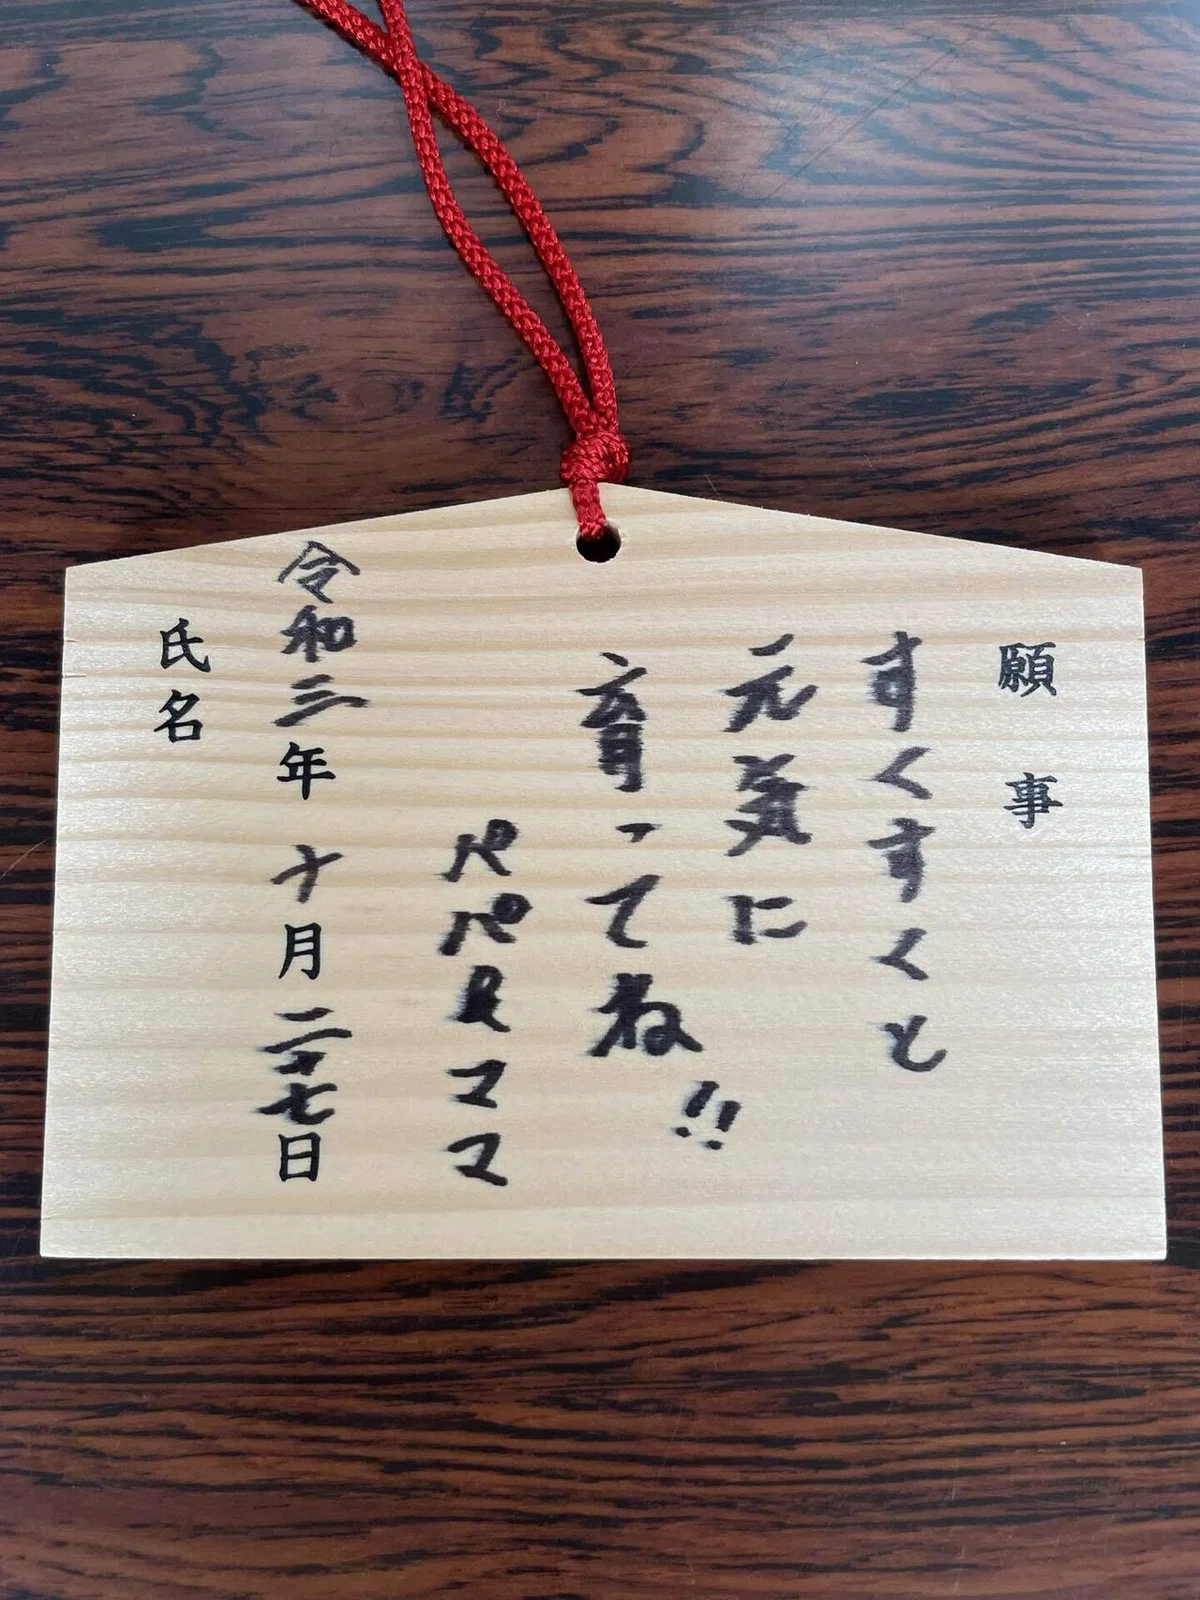 願事
すくすくと
元気に
育ってね!!
パパよりママ
令和三年十月二十七日
氏名